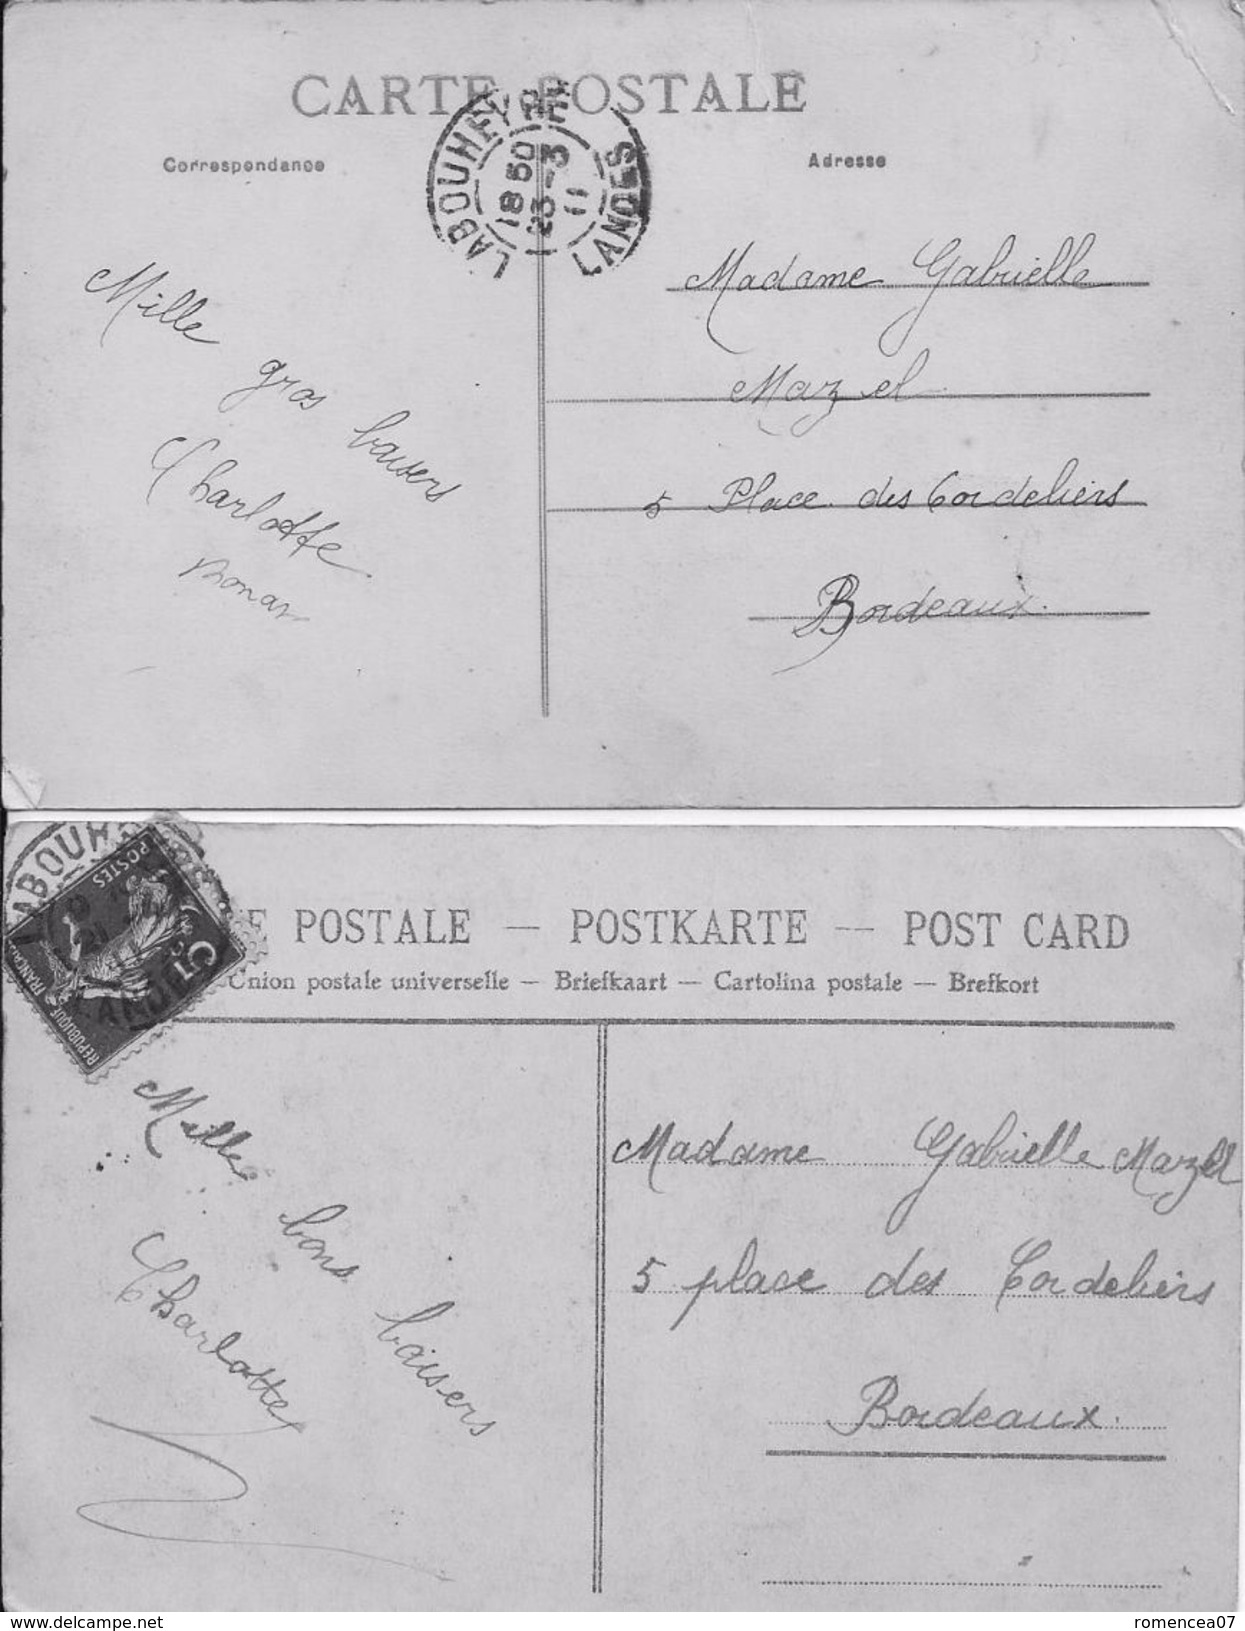 CARTE POSTALE
Correspondance
Adresse
LABOUHEYRE
18 50
23 - 3
11
LANDES
Mille gros baisers
Charlotte
Madame Gabrielle
Mazel
5 Place des Cordeliers
Bordeaux.
LABOUH
POSTES
5c
REPUBLIQUE FRANÇAISE
E POSTALE — POSTKARTE — POST CARD
Union postale universelle — Briefkaart — Cartolina postale — Brefkort
Mille bons baisers
Charlotte
Madame Gabrielle Mazel
5 place des Cordeliers
Bordeaux.
www.delcampe.net
romencea07